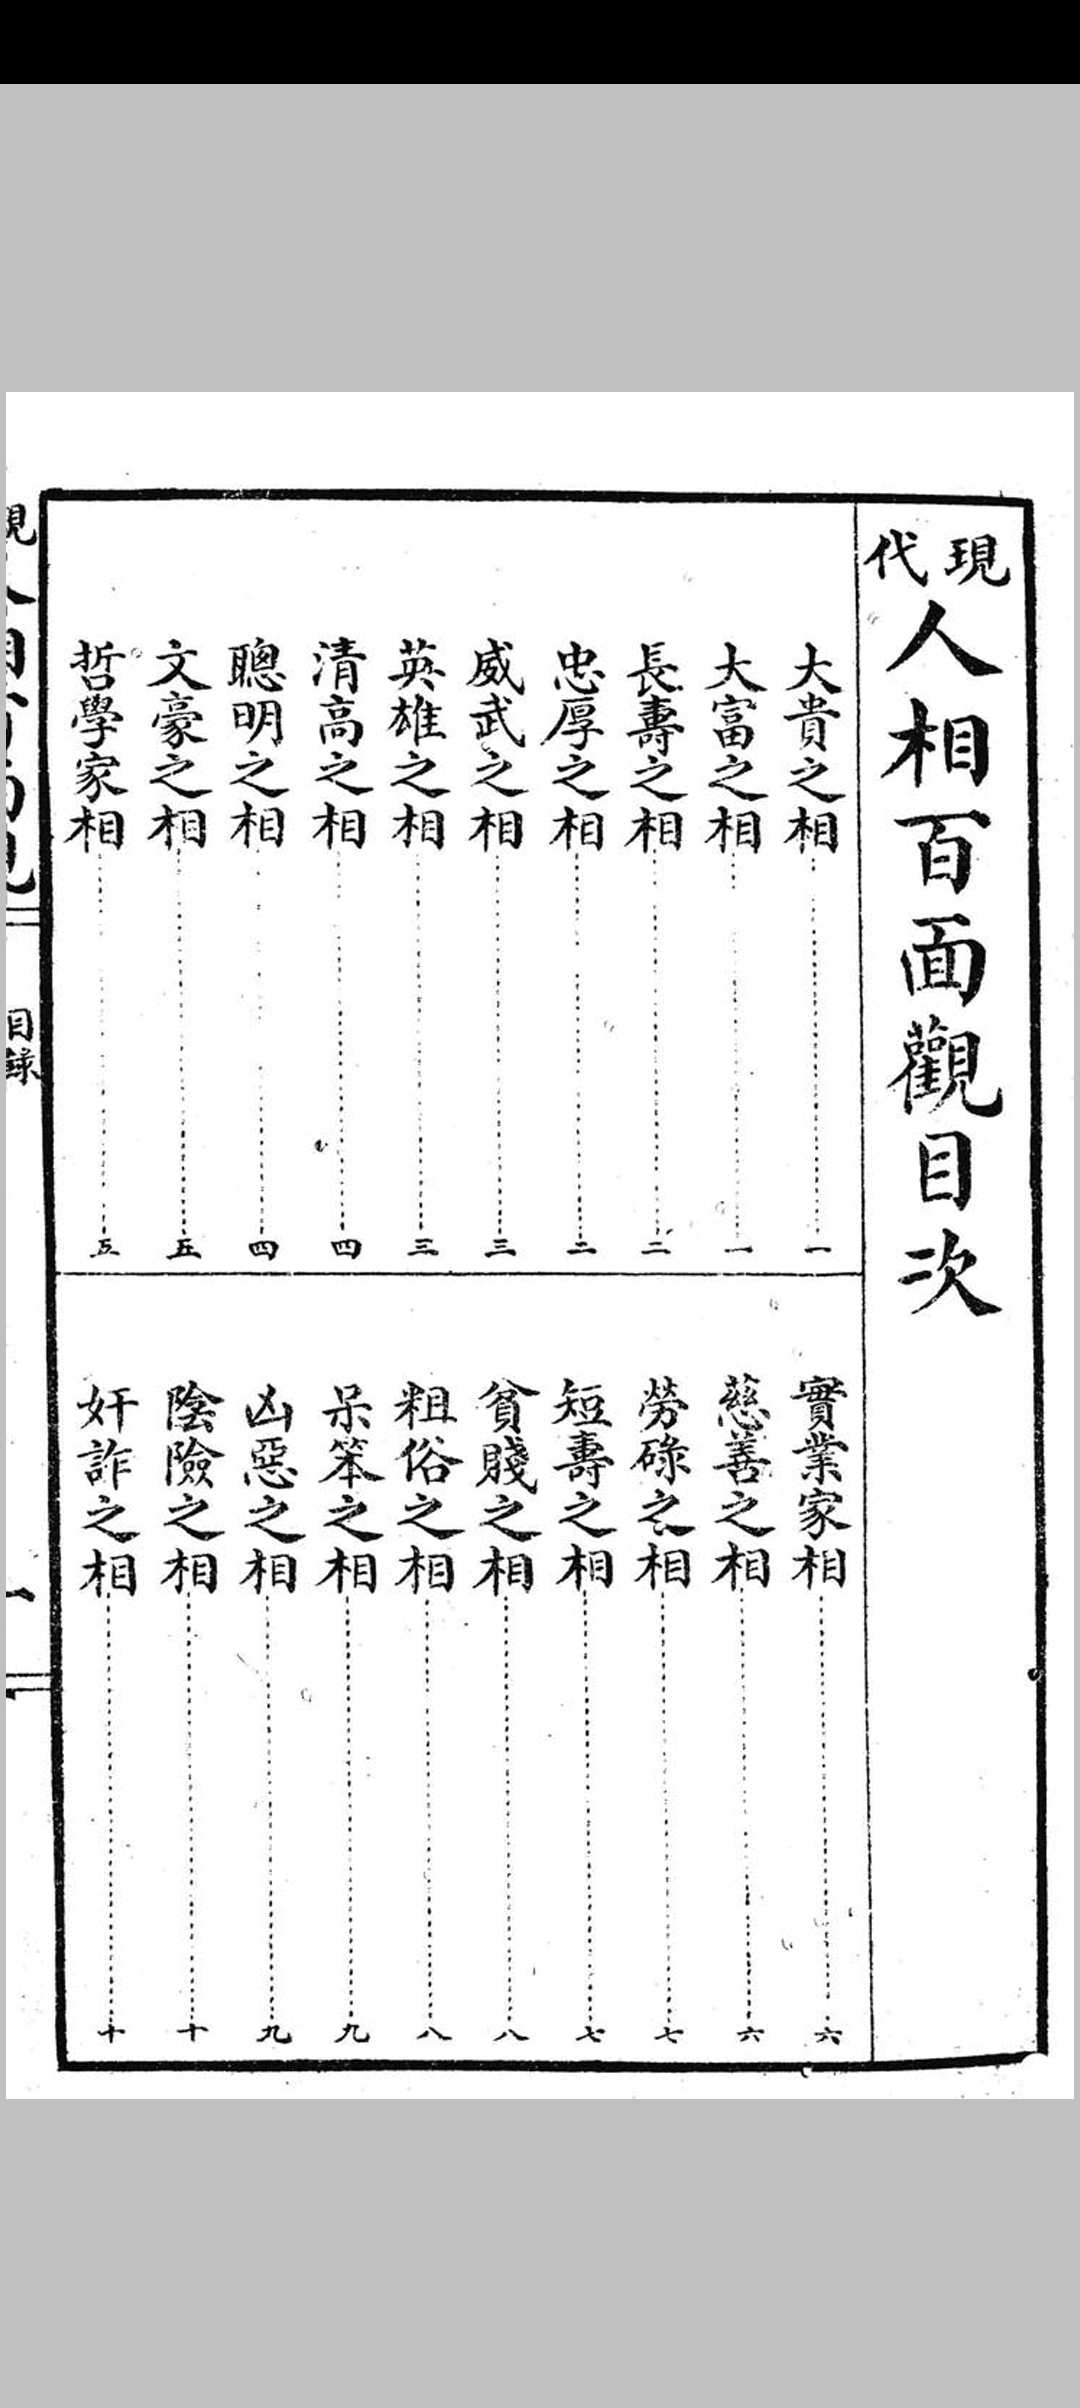 現代
人相百面觀目次
大貴之相……一
大富之相……一
長壽之相……二
忠厚之相……二
威武之相……三
英雄之相……三
清高之相……四
聰明之相……四
文豪之相……五
哲學家相……五
實業家相……六
慈善之相……六
勞碌之相……七
短壽之相……七
貧賤之相……八
粗俗之相……八
呆笨之相……九
凶惡之相……九
陰險之相……十
奸詐之相……十
目錄
一